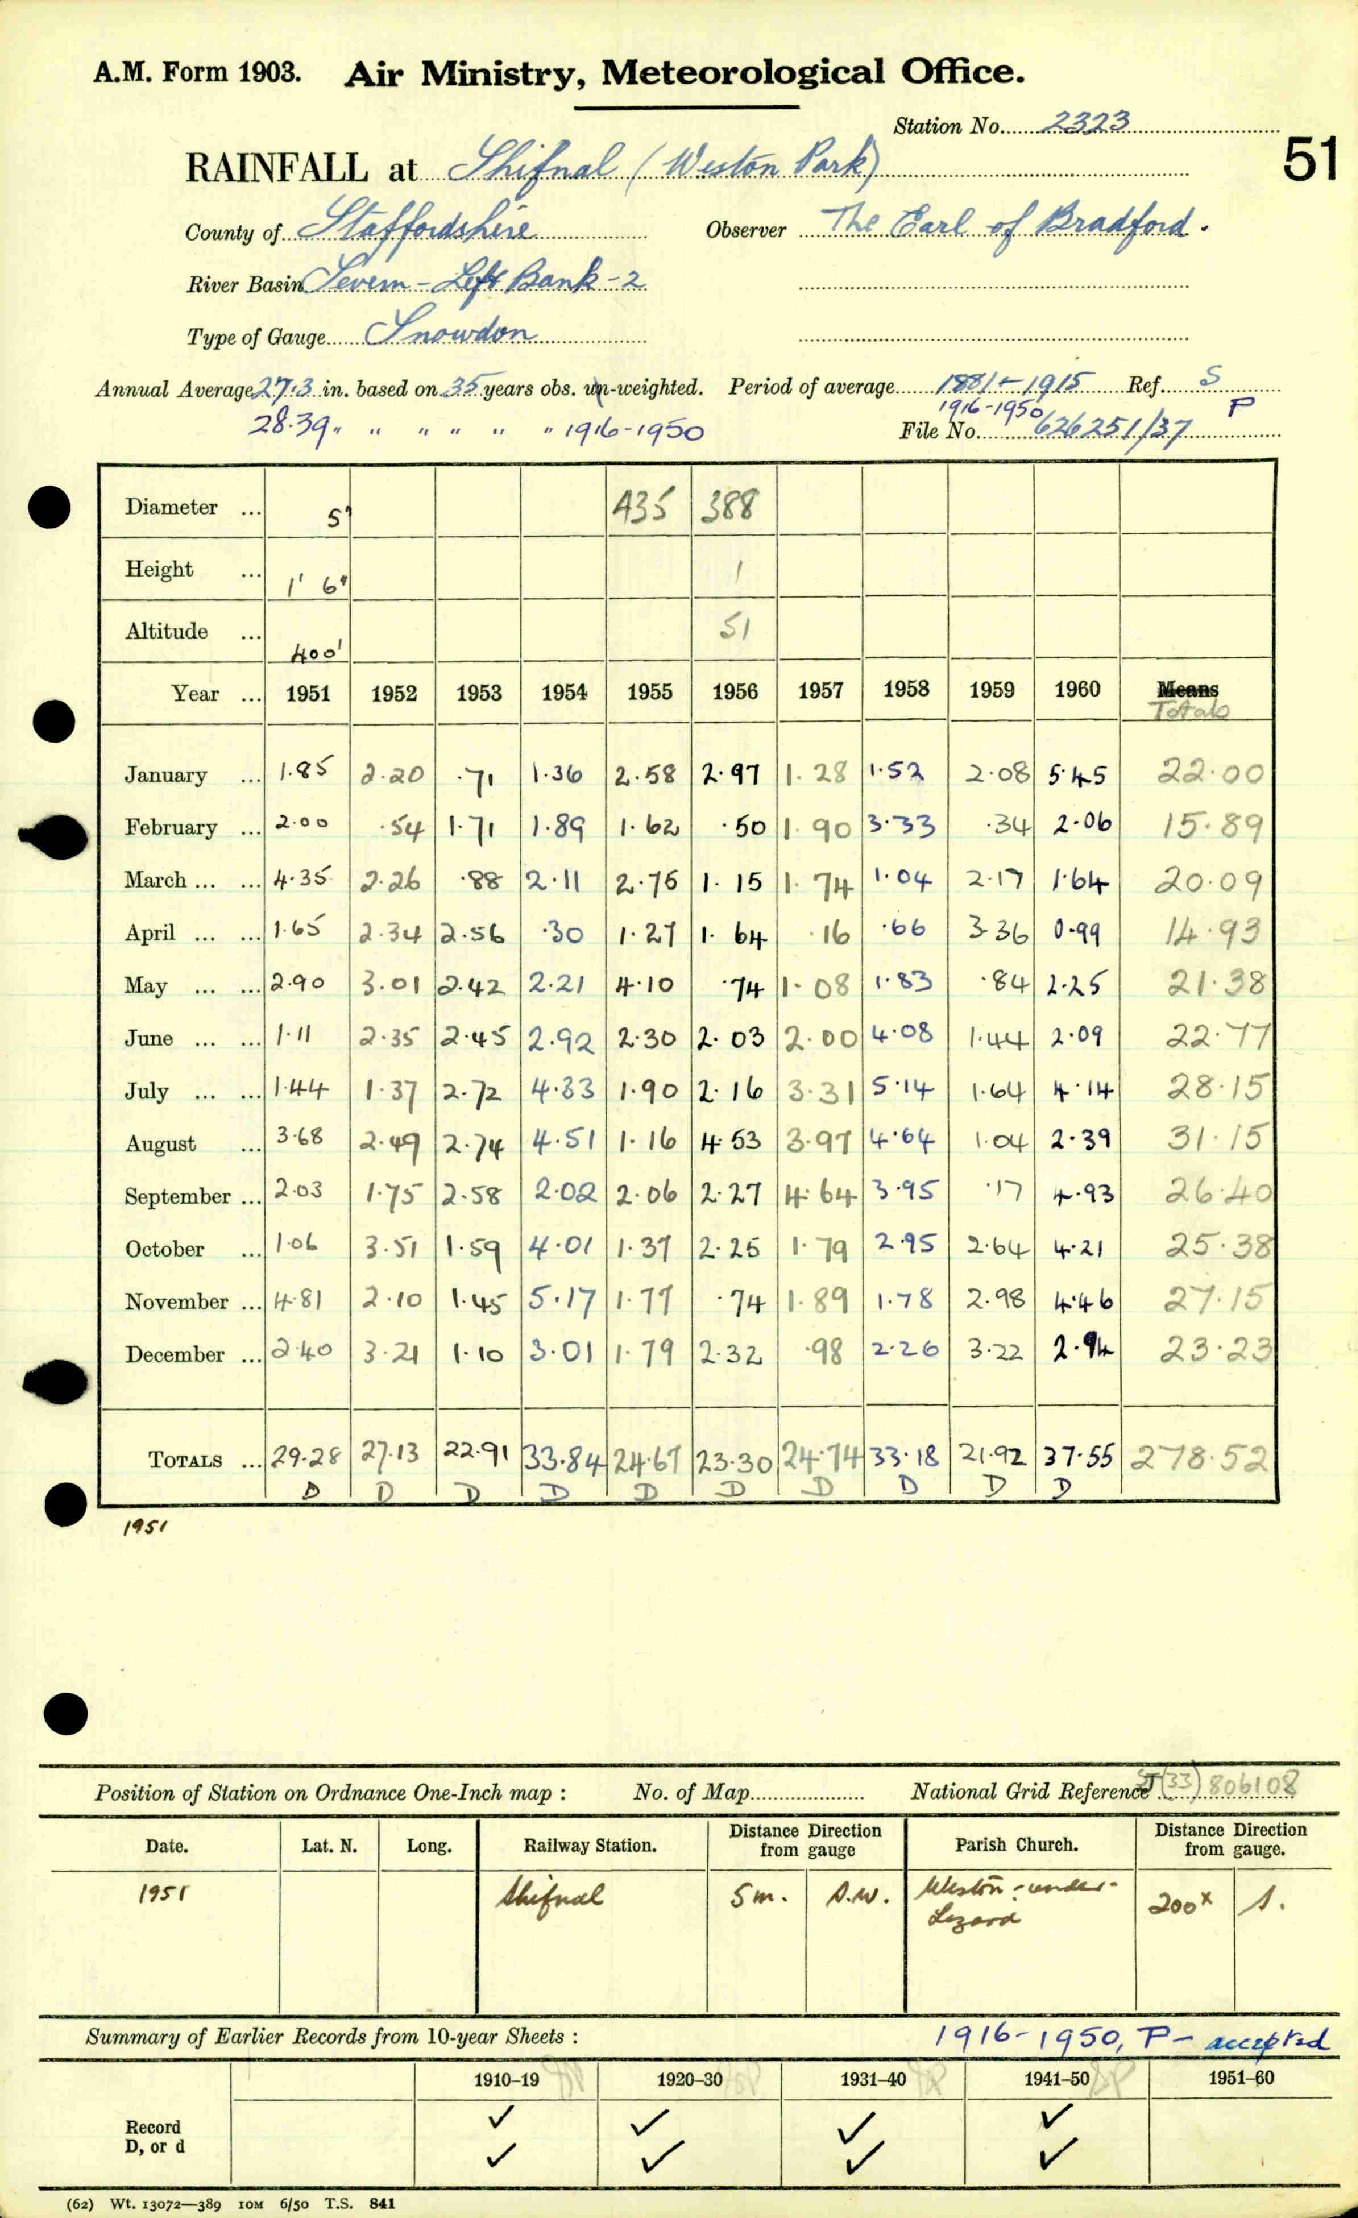 A.M. Form 1903. Air Ministry, Meteorological Office.
Station No. 2323
51
RAINFALL at Shifnal (Weston Park)
County of Staffordshire Observer The Earl of Bradford.
River Basin Severn - Left Bank - 2
Type of Gauge Snowdon
Annual Average 27.3 in. based on 35 years obs. un-weighted. Period of average 1881-1915 Ref. S
1916-1950 P
28.39 " " " " " " 1916-1950 File No. 626251/37
Diameter ... 5" 435 388
Height ... 1' 6" 1
Altitude ... 400' 51
Year ... 1951 1952 1953 1954 1955 1956 1957 1958 1959 1960 Means
Totals
January ... 1.85 2.20 .71 1.36 2.58 2.97 1.28 1.52 2.08 5.45 22.00
February ... 2.00 .54 1.71 1.89 1.62 .50 1.90 3.33 .34 2.06 15.89
March ... ... 4.35 2.26 .88 2.11 2.75 1.15 1.74 1.04 2.17 1.64 20.09
April ... ... 1.65 2.34 2.56 .30 1.27 1.64 .16 .66 3.36 0.99 14.93
May ... ... 2.90 3.01 2.42 2.21 4.10 .74 1.08 1.83 .84 2.25 21.38
June ... ... 1.11 2.35 2.45 2.92 2.30 2.03 2.00 4.08 1.44 2.09 22.77
July ... ... 1.44 1.37 2.72 4.33 1.90 2.16 3.31 5.14 1.64 4.14 28.15
August ... 3.68 2.49 2.74 4.51 1.16 4.53 3.97 4.64 1.04 2.39 31.15
September ... 2.03 1.75 2.58 2.02 2.06 2.27 4.64 3.95 .17 4.93 26.40
October ... 1.06 3.51 1.59 4.01 1.37 2.25 1.79 2.95 2.64 4.21 25.38
November ... 4.81 2.10 1.45 5.17 1.77 .74 1.89 1.78 2.98 4.46 27.15
December ... 2.40 3.21 1.10 3.01 1.79 2.32 .98 2.26 3.22 2.94 23.23
TOTALS ... 29.28 27.13 22.91 33.84 24.67 23.30 24.74 33.18 21.92 37.55 278.52
D D D D D D D D D D
1951
Position of Station on Ordnance One-Inch map : No. of Map National Grid Reference (33) 806108
Date. Lat. N. Long. Railway Station. Distance Direction from gauge Parish Church. Distance Direction from gauge.
1951 Shifnal 5 m. S.W. Weston-under-Lizard 200x S.
Summary of Earlier Records from 10-year Sheets : 1916-1950, P - accepted
1910–19 1920–30 1931–40 1941–50 1951–60
Record ✓ ✓ ✓ ✓
D, or d ✓ ✓ ✓ ✓
(62) Wt. 13072—389 10M 6/50 T.S. 841